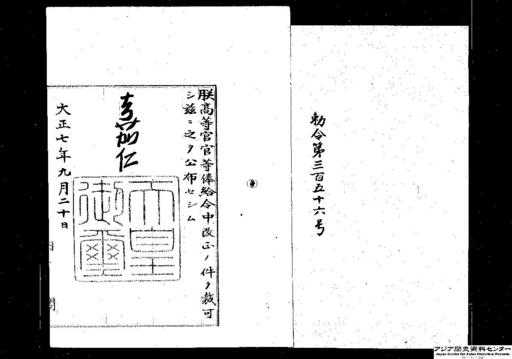 勅令第三百五十六号
朕高等官官等俸給令中改正ノ件ヲ裁可
シ茲ニ之ヲ公布セシム
嘉仁
天皇御璽
大正七年九月二十日
アジア歴史資料センター
Japan Center for Asian Historical Records